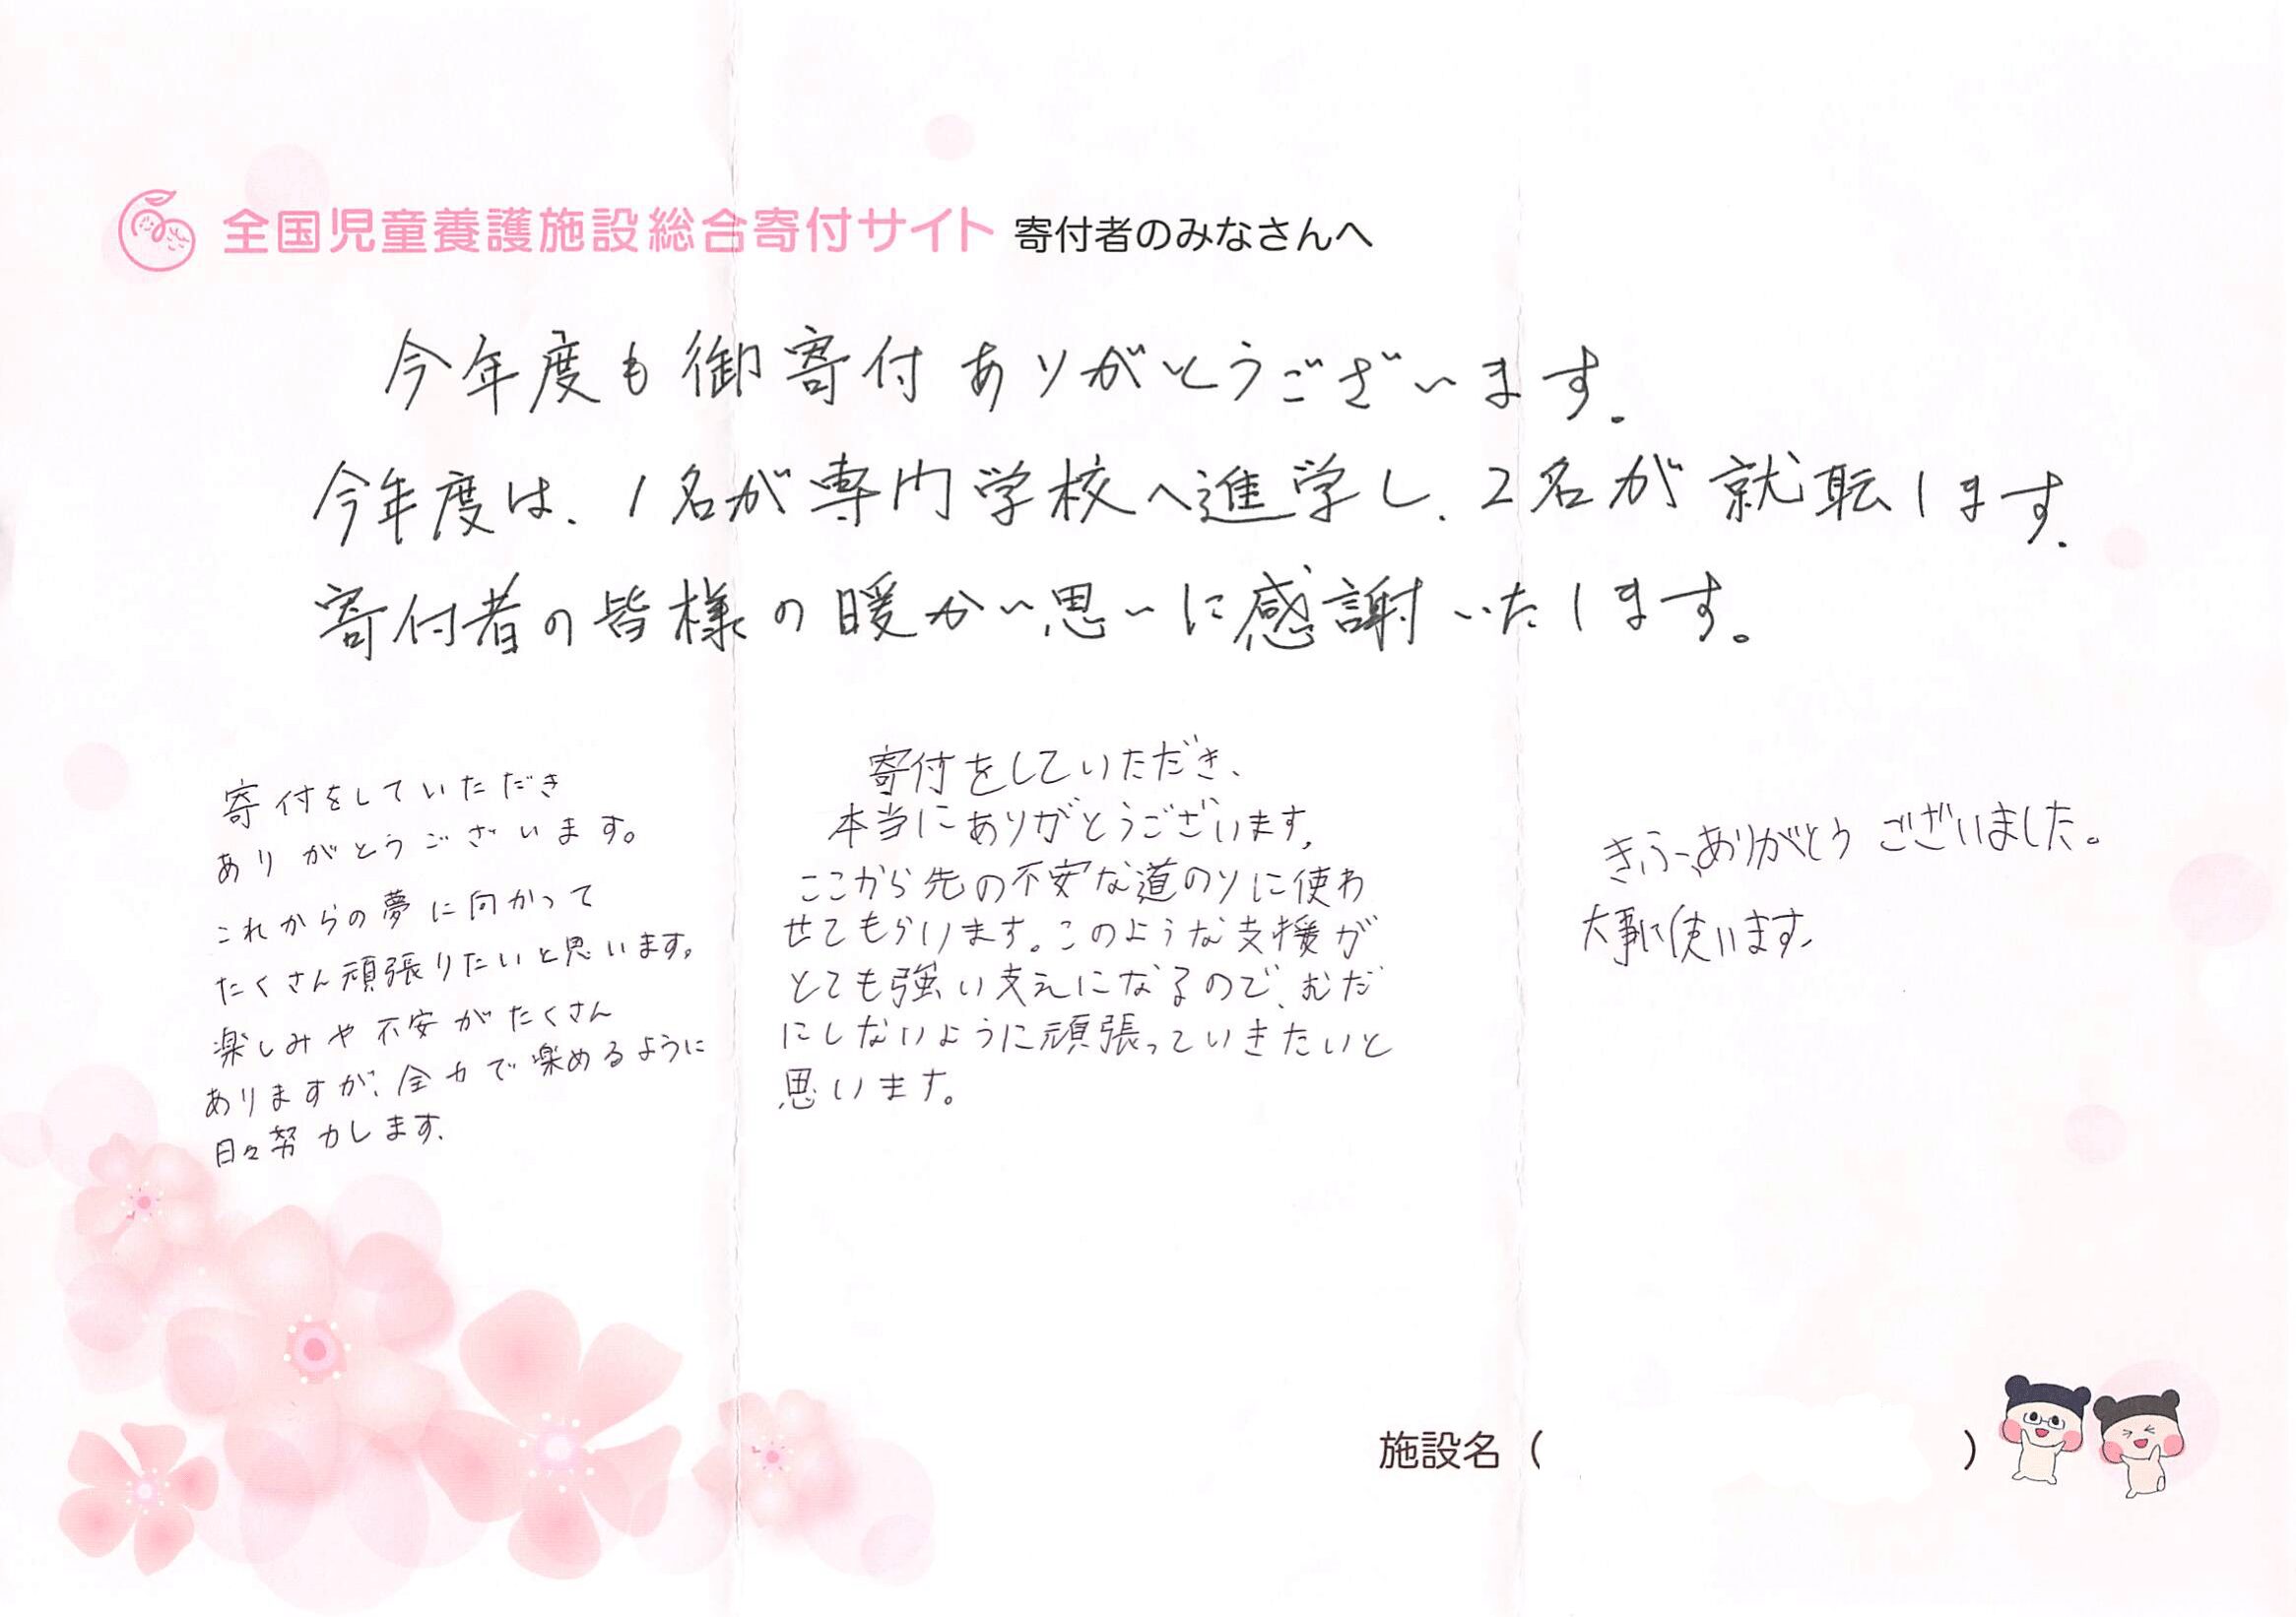 全国児童養護施設総合寄付サイト 寄付者のみなさんへ
今年度も御寄付ありがとうございます.
今年度は、1名が専門学校へ進学し、2名が就転します.
寄付者の皆様の暖かい思いに感謝いたします。
寄付をしていただき
ありがとうございます。
これからの夢に向かって
たくさん頑張りたいと思います。
楽しみや不安がたくさん
ありますが、全力で楽めるように
日々努力します.
寄付をしていただき、
本当にありがとうございます.
ここから先の不安な道のりに使わ
せてもらいます。このような支援が
とても強い支えになるので、むだ
にしないように頑張っていきたいと
思います。
きふ、ありがとうございました。
大事に使います.
施設名( )